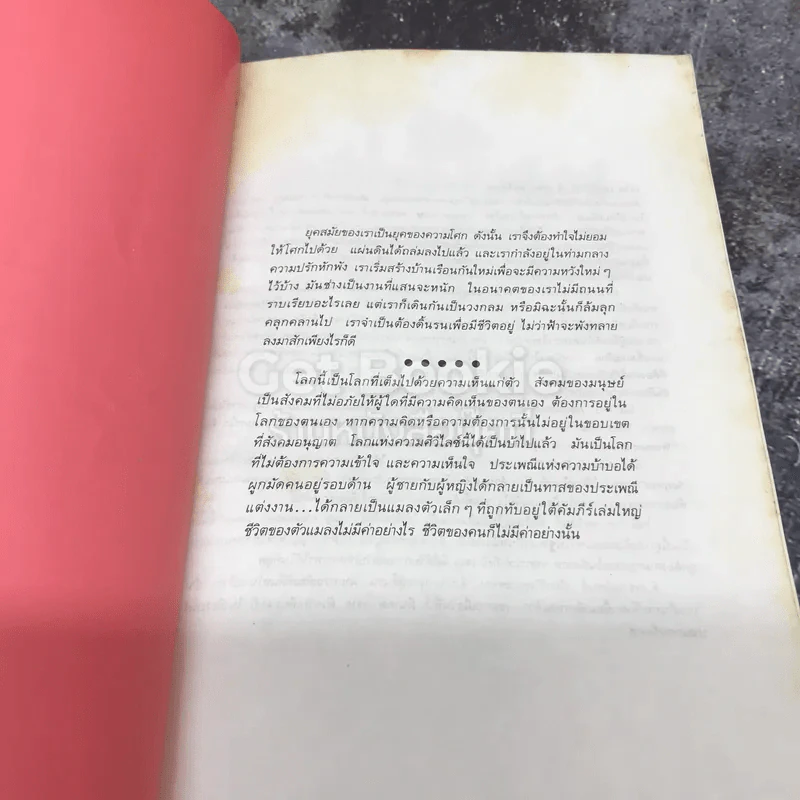 ยุคสมัยของเราเป็นยุคของความโศก ดังนั้น เราจึงต้องทำใจไม่ยอม
ให้โศกไปด้วย แผ่นดินได้ถล่มลงไปแล้ว และเรากำลังอยู่ในท่ามกลาง
ความปรักหักพัง เราเริ่มสร้างบ้านเรือนกันใหม่เพื่อจะมีความหวังใหม่ ๆ
ไว้บ้าง มันช่างเป็นงานที่แสนจะหนัก ในอนาคตของเราไม่มีถนนที่
ราบเรียบอะไรเลย แต่เราก็เดินกันเป็นวงกลม หรือมิฉะนั้นก็ล้มลุก
คลุกคลานไป เราจำเป็นต้องดิ้นรนเพื่อมีชีวิตอยู่ ไม่ว่าฟ้าจะพังทลาย
ลงมาสักเพียงไรก็ดี
● ● ● ● ●
Get Bookie
โลกนี้เป็นโลกที่เต็มไปด้วยความเห็นแก่ตัว สังคมของมนุษย์
เป็นสังคมที่ไม่อภัยให้ผู้ใดที่มีความคิดเห็นของตนเอง ต้องการอยู่ใน
โลกของตนเอง หากความคิดหรือความต้องการนั้นไม่อยู่ในขอบเขต
ที่สังคมอนุญาต โลกแห่งความศิวิไลซ์นี้ได้เป็นบ้าไปแล้ว มันเป็นโลก
ที่ไม่ต้องการความเข้าใจ และความเห็นใจ ประเพณีแห่งความบ้าบอได้
ผูกมัดคนอยู่รอบด้าน ผู้ชายกับผู้หญิงได้กลายเป็นทาสของประเพณี
แต่งงาน...ได้กลายเป็นแมลงตัวเล็ก ๆ ที่ถูกทับอยู่ใต้คัมภีร์เล่มใหญ่
ชีวิตของตัวแมลงไม่มีค่าอย่างไร ชีวิตของคนก็ไม่มีค่าอย่างนั้น